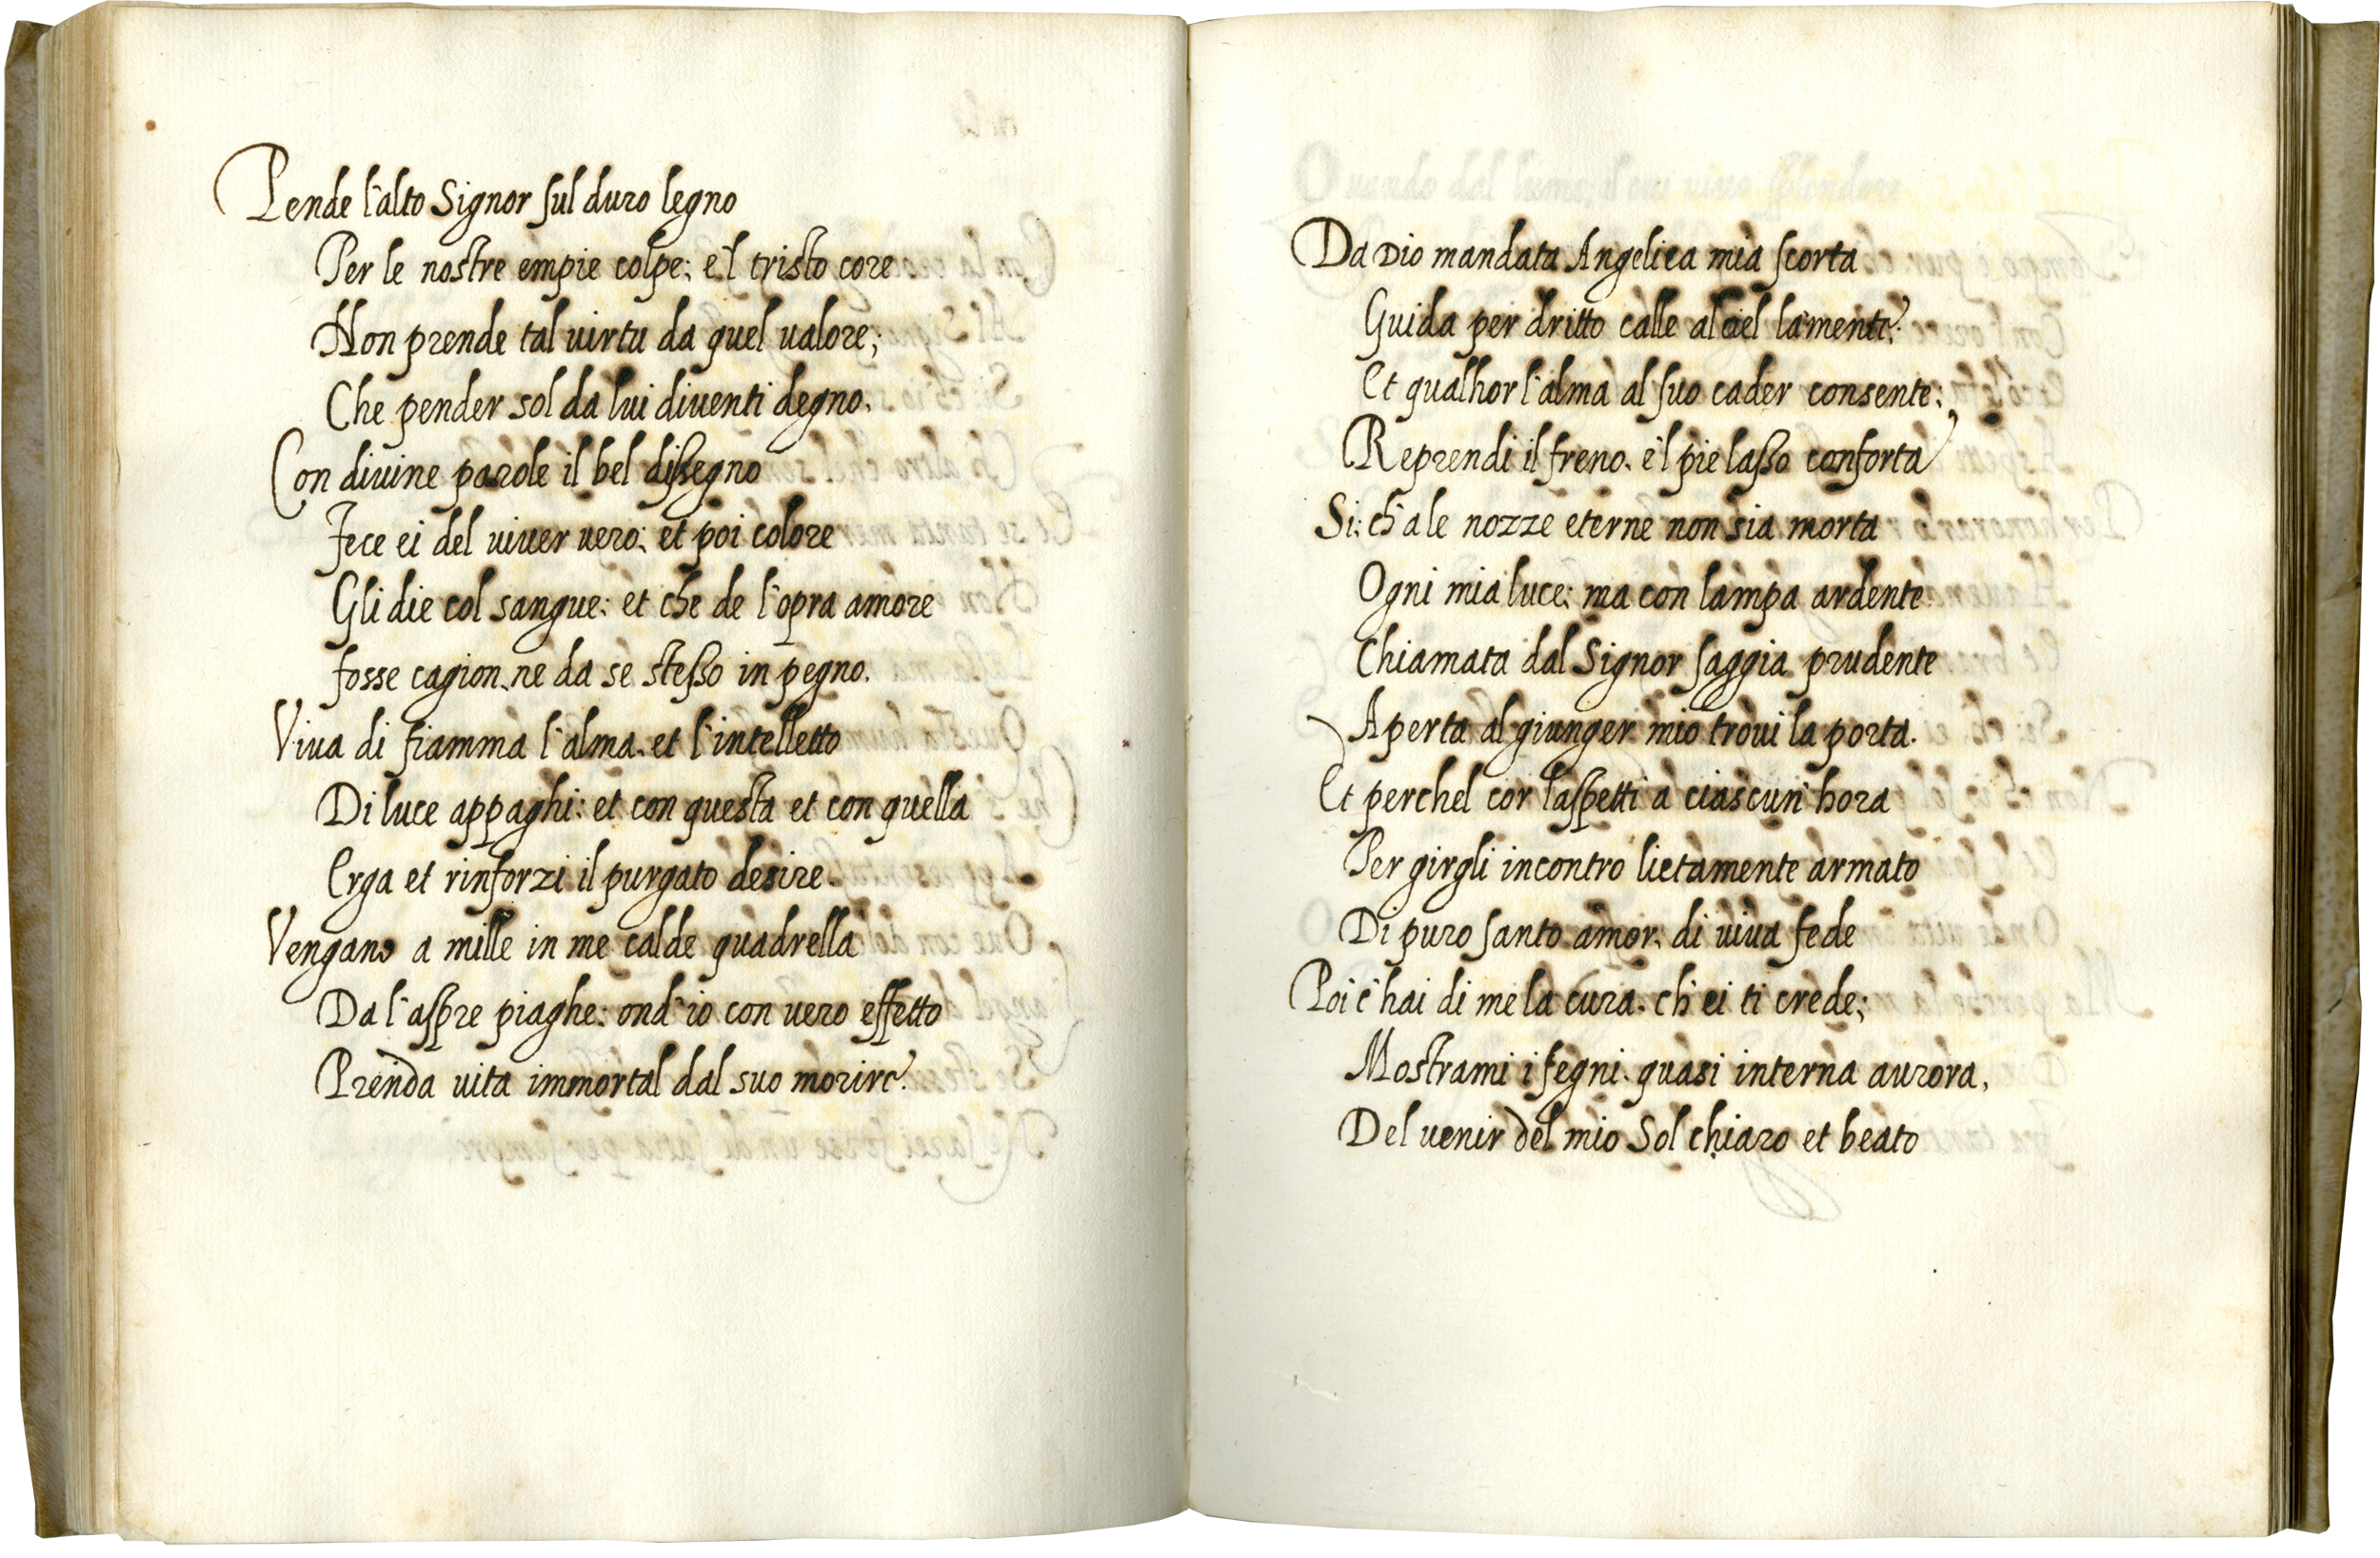 Pende l'alto Signor sul duro legno
Per le nostre empie colpe; e'l tristo core
Non prende tal virtu da quel ualore;
Che pender sol da lui diuenti degno.
Con diuine parole il bel dissegno
Fece ei del uiuer uero; et poi colore
Gli die col sangue: et che de l'opra amore
fosse cagion, ne da se stesso in pegno.
Viua di fiamma l'alma, et l'intelletto
Di luce appaghi: et con questa et con quella
Erga et rinforzi il purgato desire.
Vengano a mille in me calde quadrella
Da l'aspre piaghe: ond'io con uero effetto
Prenda uita immortal dal suo morire.
Da Dio mandata Angelica mia scorta
Guida per dritto calle al ciel la mente:
Et qualhor l'alma al suo cader consente;
Reprendi il freno, e'l pie lasso conforta
Si; ch'a le nozze eterne non sia morta
Ogni mia luce; ma con lampa ardente
Chiamata dal Signor saggia prudente
Aperta al giunger mio troui la porta.
Et perchel cor l'aspetti a ciascun'hora
Per girgli incontro lietamente armato
Di puro santo amor, di uiua fede
Poi c'hai di me la cura, ch'ei ti crede;
Mostrami i segni, quasi interna aurora,
Del uenir del mio Sol chiaro et beato